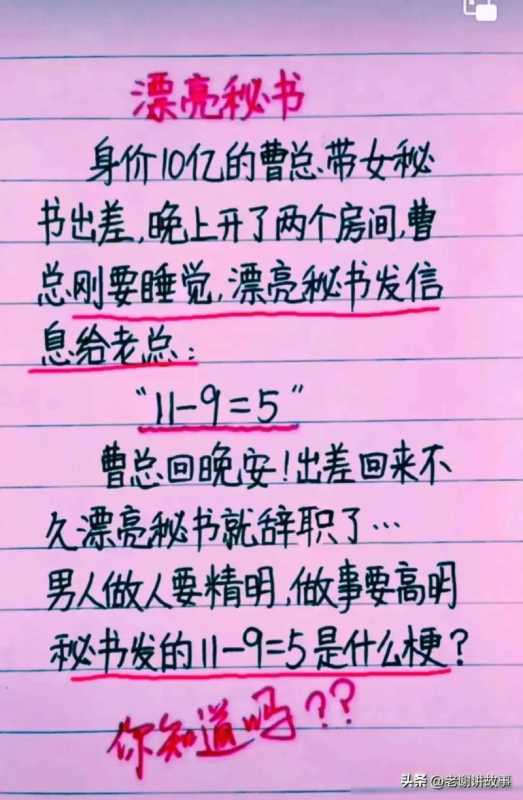 漂亮秘书
身价10亿的曹总带女秘
书出差,晚上开了两个房间,曹
总刚要睡觉,漂亮秘书发信
息给老总:
"11-9=5"
曹总回晚安!出差回来不
久漂亮秘书就辞职了…
男人做人要精明,做事要高明
秘书发的11-9=5是什么梗?
你知道吗??
头条 @老谢讲故事